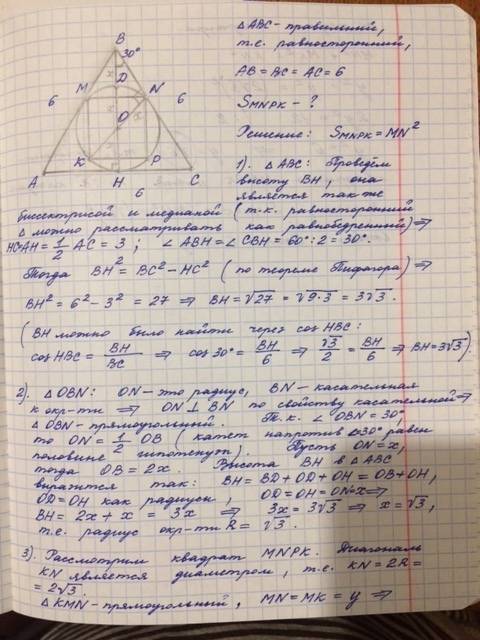 B
30°
x
D
M
N
6
6
x
x
O
x
K
P
A
H
C
6
△ABC - правильный,
т.е. равносторонний,
AB = BC = AC = 6
SMNPK - ?
Решение: SMNPK = MN²
1). △ABC: Проведём
высоту BH, она
является так же
биссектрисой и медианой (т.к. равносторонний
△ можно рассматривать как равнобедренный) ⇒
HC=AH = 1/2 AC = 3; ∠ABH = ∠CBH = 60° : 2 = 30°.
Тогда BH² = BC² - HC² (по теореме Пифагора) ⇒
BH² = 6² - 3² = 27 ⇒ BH = √27 = √9·3 = 3√3.
(BH можно было найти через cos HBC:
cos HBC = BH/BC ⇒ cos 30° = BH/6 ⇒ √3/2 = BH/6 ⇒ BH = 3√3).
2). △OBN: ON - это радиус, BN - касательная
к окр-ти ⇒ ON ⊥ BN по свойству касательной ⇒
△OBN - прямоугольный. Т.к. ∠OBN = 30°,
то ON = 1/2 OB (катет напротив ∠30° равен
половине гипотенузы). Пусть ON = x,
тогда OB = 2x. Высота BH в △ABC
выразится так: BH = BD + OD + OH = OB + OH,
OD = OH как радиусы, OD = OH = ON = x ⇒
BH = 2x + x = 3x ⇒ 3x = 3√3 ⇒ x = √3,
т.е. радиус окр-ти R = √3.
3). Рассмотрим квадрат MNPK. Диагональ
KN является диаметром, т.е. KN = 2R =
= 2√3.
△KMN - прямоугольный, MN = MK = y ⇒